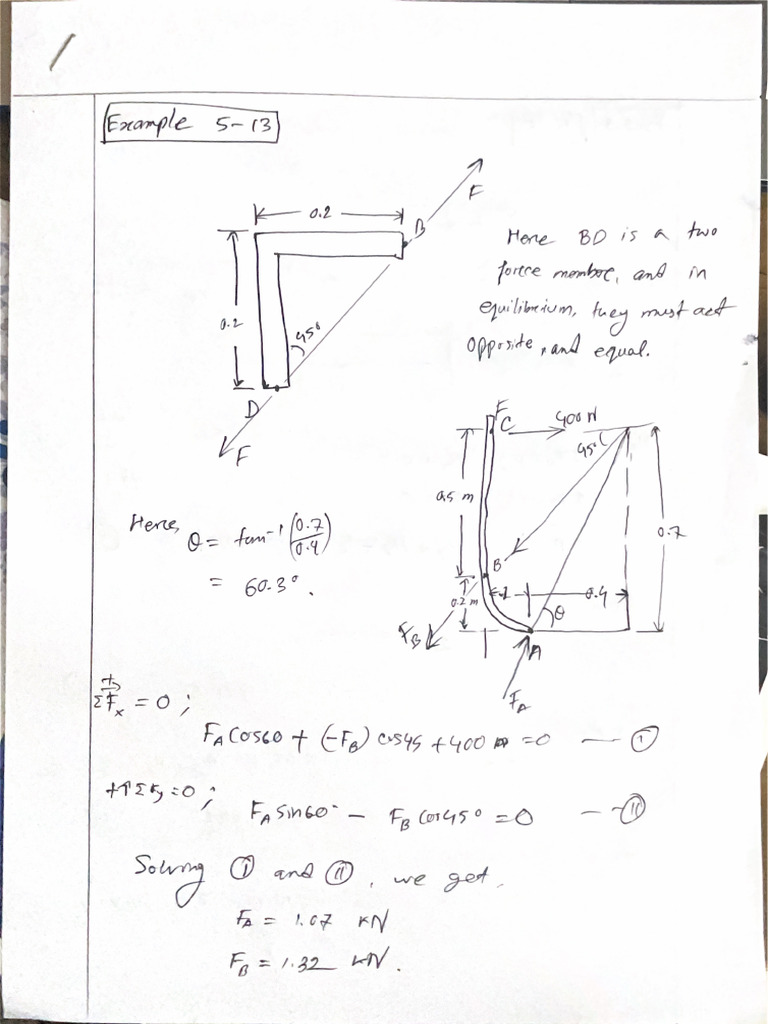 Example 5-13
F
0.2
B
Here BD is a two
force member, and in
equilibrium, they must act
opposite, and equal.
0.2
45°
D
F
C
400 N
45°
0.5 m
0.7
B
.1
0.4
0.2 m
θ
F_B
A
F_A
Here, θ = tan⁻¹(0.7/0.4)
= 60.3°.
ΣF_x = 0 ;
F_A cos60 + (-F_B) cos45 + 400 = 0 — Ⓘ
+↑ΣF_y = 0 ;
F_A sin60° - F_B cos45° = 0 — Ⓘⓘ
Solving Ⓘ and Ⓘⓘ, we get,
F_A = 1.07 kN
F_B = 1.32 kN.